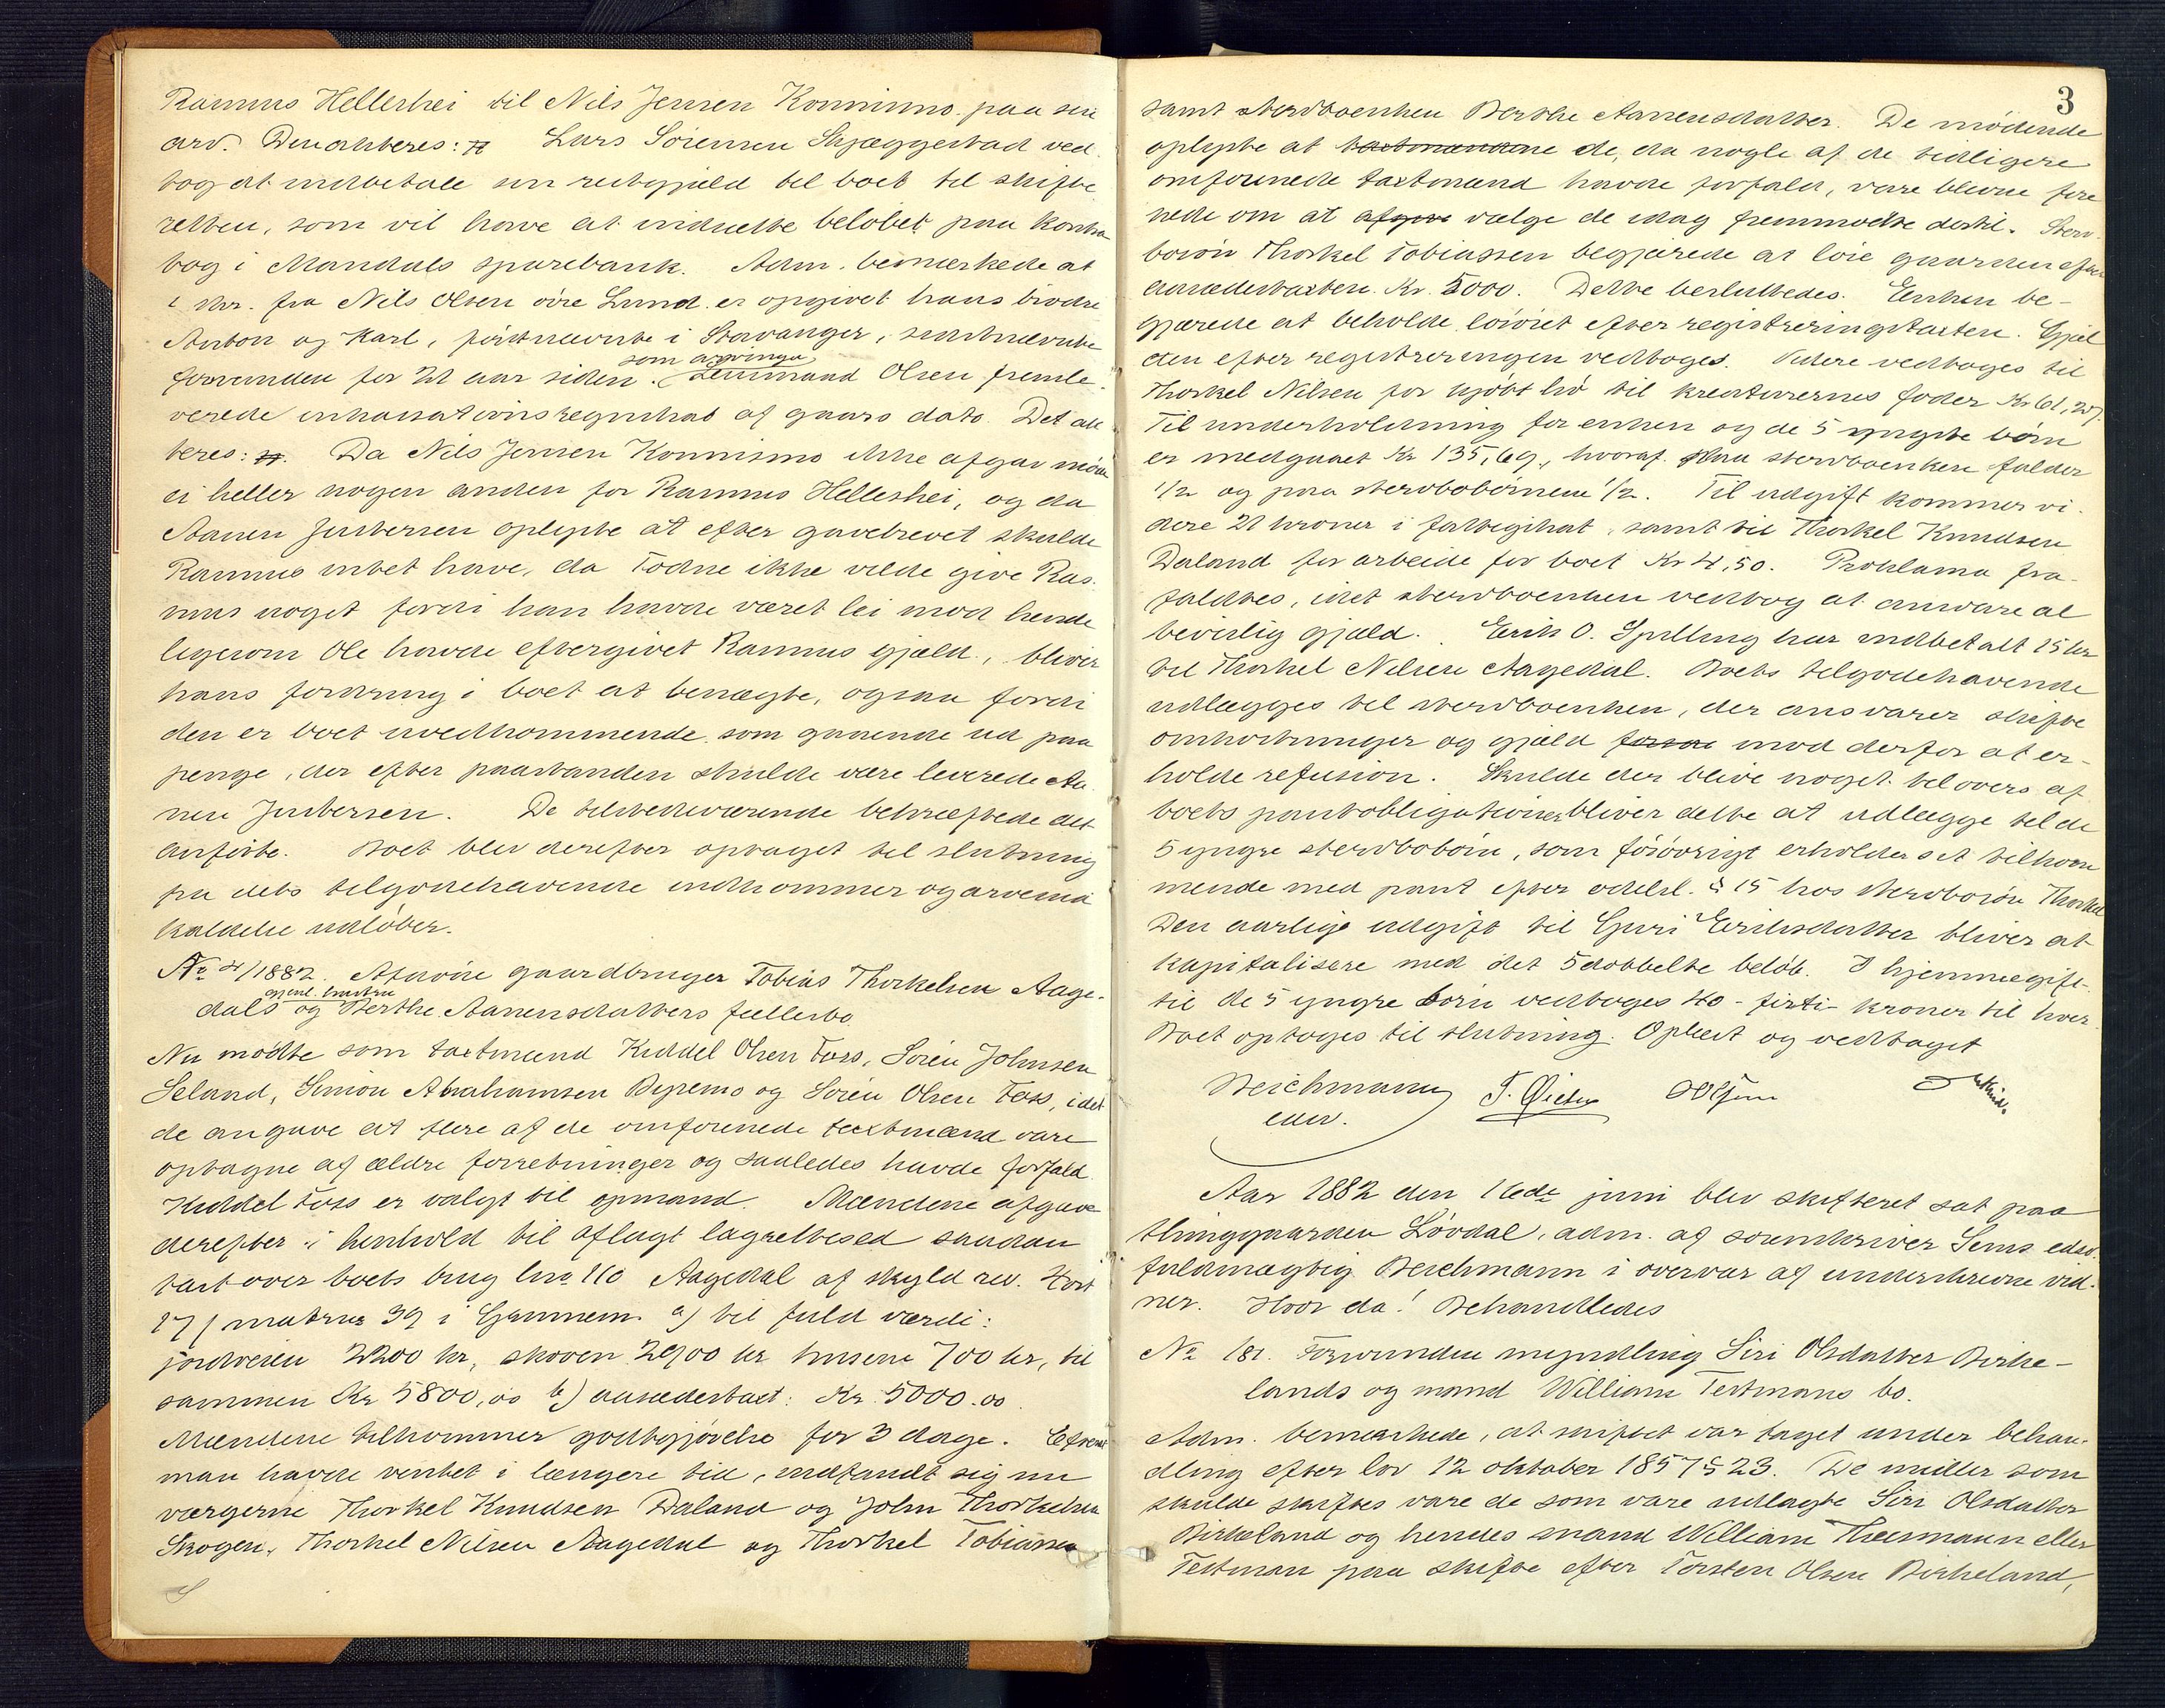 Rasmus Hellerhei til Nils Jensen Konnismo paa sin
arv. Den akteres: Lars Sörensen Skjæggestad ved
tog at indbetale sin restgjæld til boet til skifte
retten, som vil have at indsætte belöbet paa kontra
bog i Mandals sparebank. Adm. bemærkede at
i skr. fra Nils Olsen övre Lund er opgivet hans brödre
Anton og Karl, förstnævnte i Stavanger, sidstnævnte
som arvinga
forsvunden for 21 aar siden. Lensmand Olsen fremle
verede inkassationsregnskab af gaars dato. Det ak
teres: Da Nils Jensen Konnismo ikke afgav möde
ei heller nogen anden for Rasmus Helleshei, og da
Aanen Justersen oplyste at efter gavebrevet skulde
Rasmus intet have, da Todne ikke vilde give Ras
mus noget fordi han havde været lei mod hende
ligesom Ole havde eftergivet Rasmus gjæld, bliver
hans fordring i boet at benægte, ogsaa fordi
den er boet uvedkommende som gaaende ud paa
penge, der efter paastanden skulde være leverede Aa
nen Justersen. De tilstedeværende bekræftede det
anförte. Boet blev derefter optaget til slutning
paa dets tilgodehavende indkommer og arveind
kaldelse udlöber.
No 4/1882. Afdöde gaardbruger Tobias Thorkelsen Aage-
gjenl. hustru
dals og Berthe Aanensdatters fællesbo
Nu mödte som taxtmænd Kiddel Olsen Foss, Sören Johnsen
Seland, Simon Abrahamsen Bypemo og Sören Olsen Foss, idet
de angave at flere af de omforenede taxtmænd vare
optagne af ældre forretninger og saaledes havde forfald.
Kiddel Foss er valgt til opmand. Mændene afgave
derefter i henhold til aflagt lagrettesed saadan
taxt over boets brug lno 110 Aagedal af skyld rev. 4ort
17 / matrno 39 i Gammem a) til fuld værdi:
jordveien 2200 kr, skoven 2900 kr husene 700 kr, til
sammen Kr 5800,00 b) aasædestaxt: Kr. 5000.00
Mændene tilkommer godtgjörelse for 3 dage. Efterat
man havde ventet i længere tid, indfandt sig nu
værgerne Thorkel Knudsen Daland og John Thorkelsen
Skogen, Thorkel Nilsen Aagedal og Thorkel Tobiassen
3
samt stervboenken Berthe Aanensdatter. De mödende
oplyste at taxtmændene de, da nogle af de tidligere
omforenede taxtmænd havde forfald, vare blevne fore
nede om at afgive vælge de idag fremmödte dertil. Sterv-
bosön Thorkel Tobiassen begjærede at löse gaarden efter
aasædestaxten Kr. 5000. Dette besluttedes. Enken be-
gjærede at beholde lösöret efter registreringstaxten. Gjæl
den efter registreringen vedtoges. Videre vedtoges til
Thorkel Nilsen for kjöbt hö til kreaturernes foder Kr 61,27.
Til underholdning for enken og de 5 yngste börn
er medgaaet Kr 135,69, hvoraf paa stervboenken falder
1/2 og paa stervbobörnene 1/2. Til udgift kommer vi-
dere 21 kroner i fattigskat, samt til Thorkel Knudsen
Daland for arbeide for boet Kr 4,50. Proklama fra-
faldtes, idet sterboenken vedtog at ansvare al
bevislig gjæld. Erik O. Spilling har indbetalt 15 kr
til Thorkel Nilsen Aagedal. Boets tilgodehavende
udlægges til stervboenken, der ansvarer skifte
omkostninger og gjæld mod derfor at er-
holde refusion. Skulde der blive noget tilovers af
boets pantobligationer bliver dette at udlægge til de
5 yngre stervbobörn, som forövrigt erholder sit tilkom
mende med pant efter odelsl. § 15 hos stervbosön Thorkel
Den aarlige udgift til Guri Eriksdatter bliver at
kapitalisere med det 5dobbelte belöb. I hjemmegift-
til de 5 yngre börn vedtoges 40 - firti - kroner til hver
Boet optoges til slutning. Oplæst og vedtaget
Beichmann
edsv.
Aar 1882 den 16de juni blev skifteret sat paa
thinggaarden Lövdal, adm. af sorenskriver Sems edsv.
fuldmægtig Beichmann i overvær af underskrevne vid-
ner. Hvor da! Behandledes
No 181. Forsvunden myndling Siri Olsdatter Birke-
lands og mand William Testmans bo.
Adm. bemærkede, at skiftet var taget under behan-
dling efter lov 12 oktober 1857 § 23. De midler som
skulde skiftes vare de som vare udlagte Siri Olsdatter
Birkeland og hendes mand William Theesmann eller
Testman paa skifte efter Torsten Olsen Birkeland,